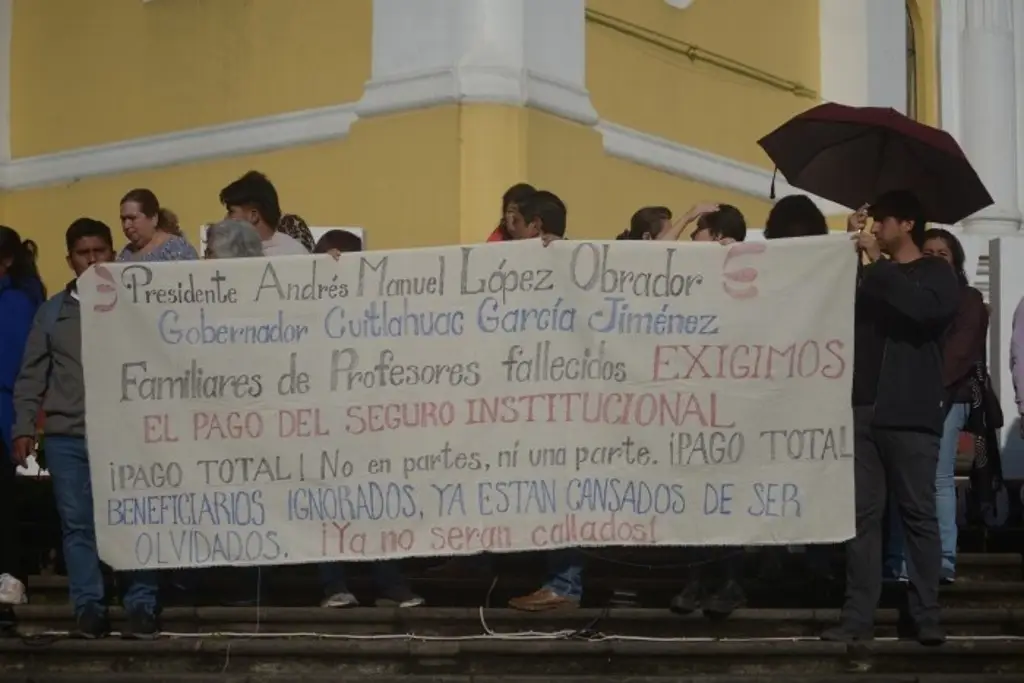 Presidente Andrés Manuel López Obrador
Gobernador Cuitlahuac García Jiménez
Familiares de Profesores fallecidos EXIGIMOS
EL PAGO DEL SEGURO INSTITUCIONAL
¡PAGO TOTAL! No en partes, ní una parte. ¡PAGO TOTAL
BENEFICIARIOS IGNORADOS, YA ESTAN CANSADOS DE SER
OLVIDADOS. ¡Ya no seran callados!